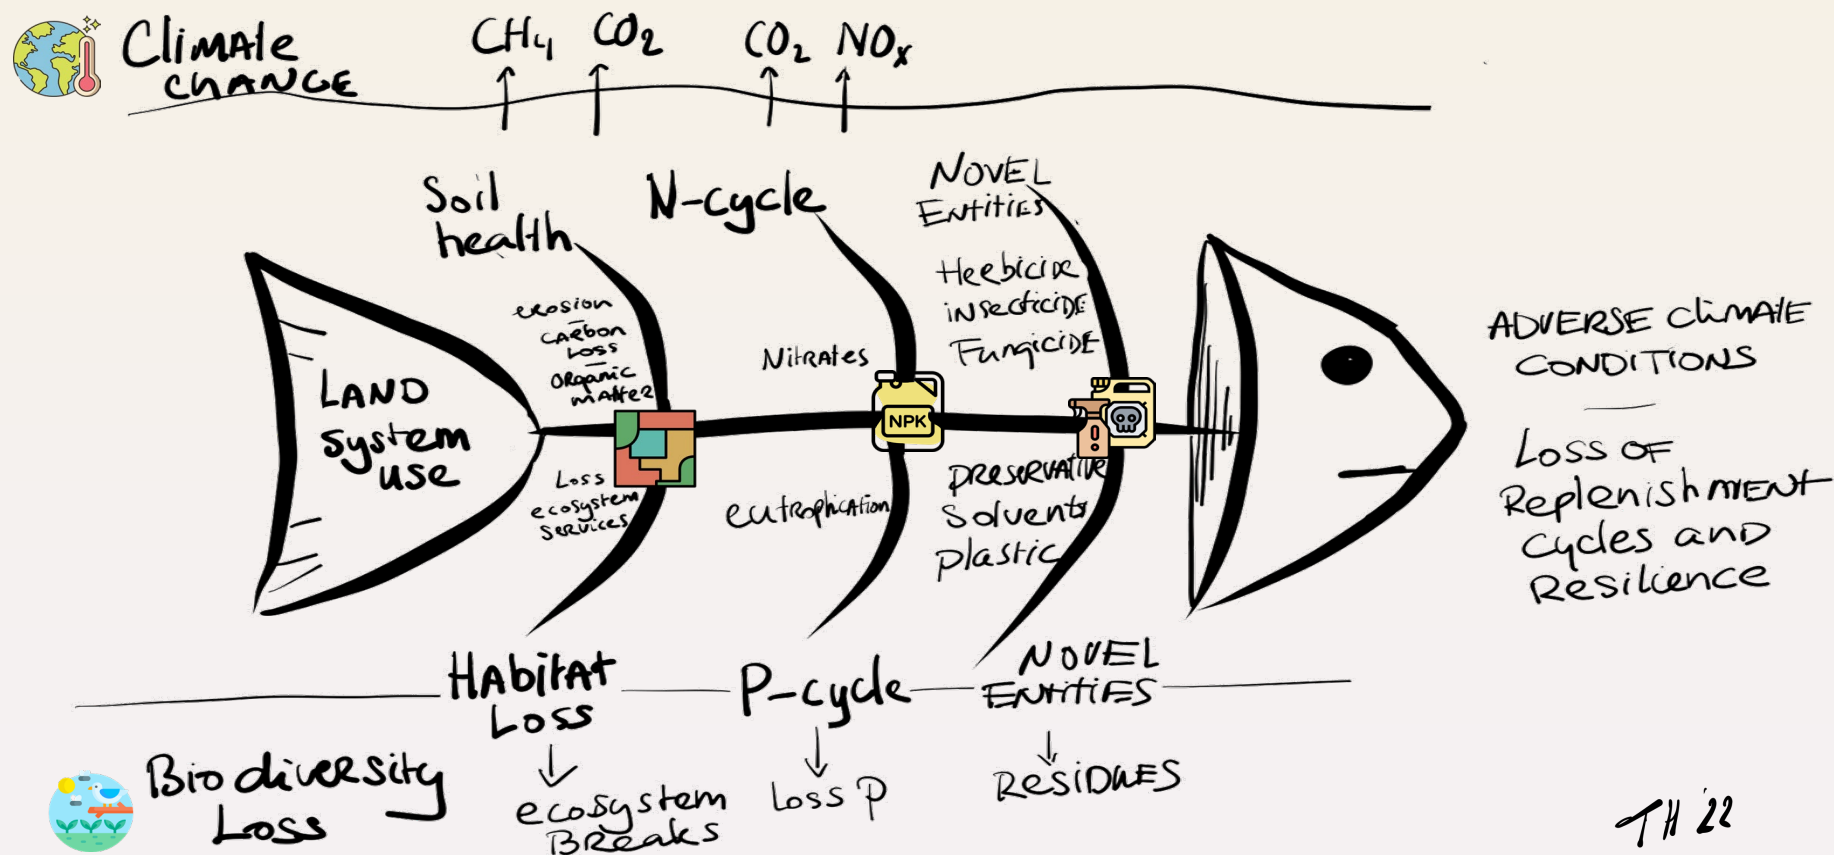 Climate
change
CH4 CO2 CO2 NOx
Soil
health
N-cycle
Novel
Entities
erosion
carbon
loss
organic
matter
Nitrates
Herbicide
insecticide
Fungicide
Land
system
use
NPK
Loss
ecosystem
services
eutrophication
preservative
Solvents
plastic
Adverse climate
conditions
Loss of
Replenishment
cycles and
Resilience
Habitat
Loss
P-cycle
Novel
Entities
Biodiversity
Loss
ecosystem
Breaks
Loss P
Residues
TH '22